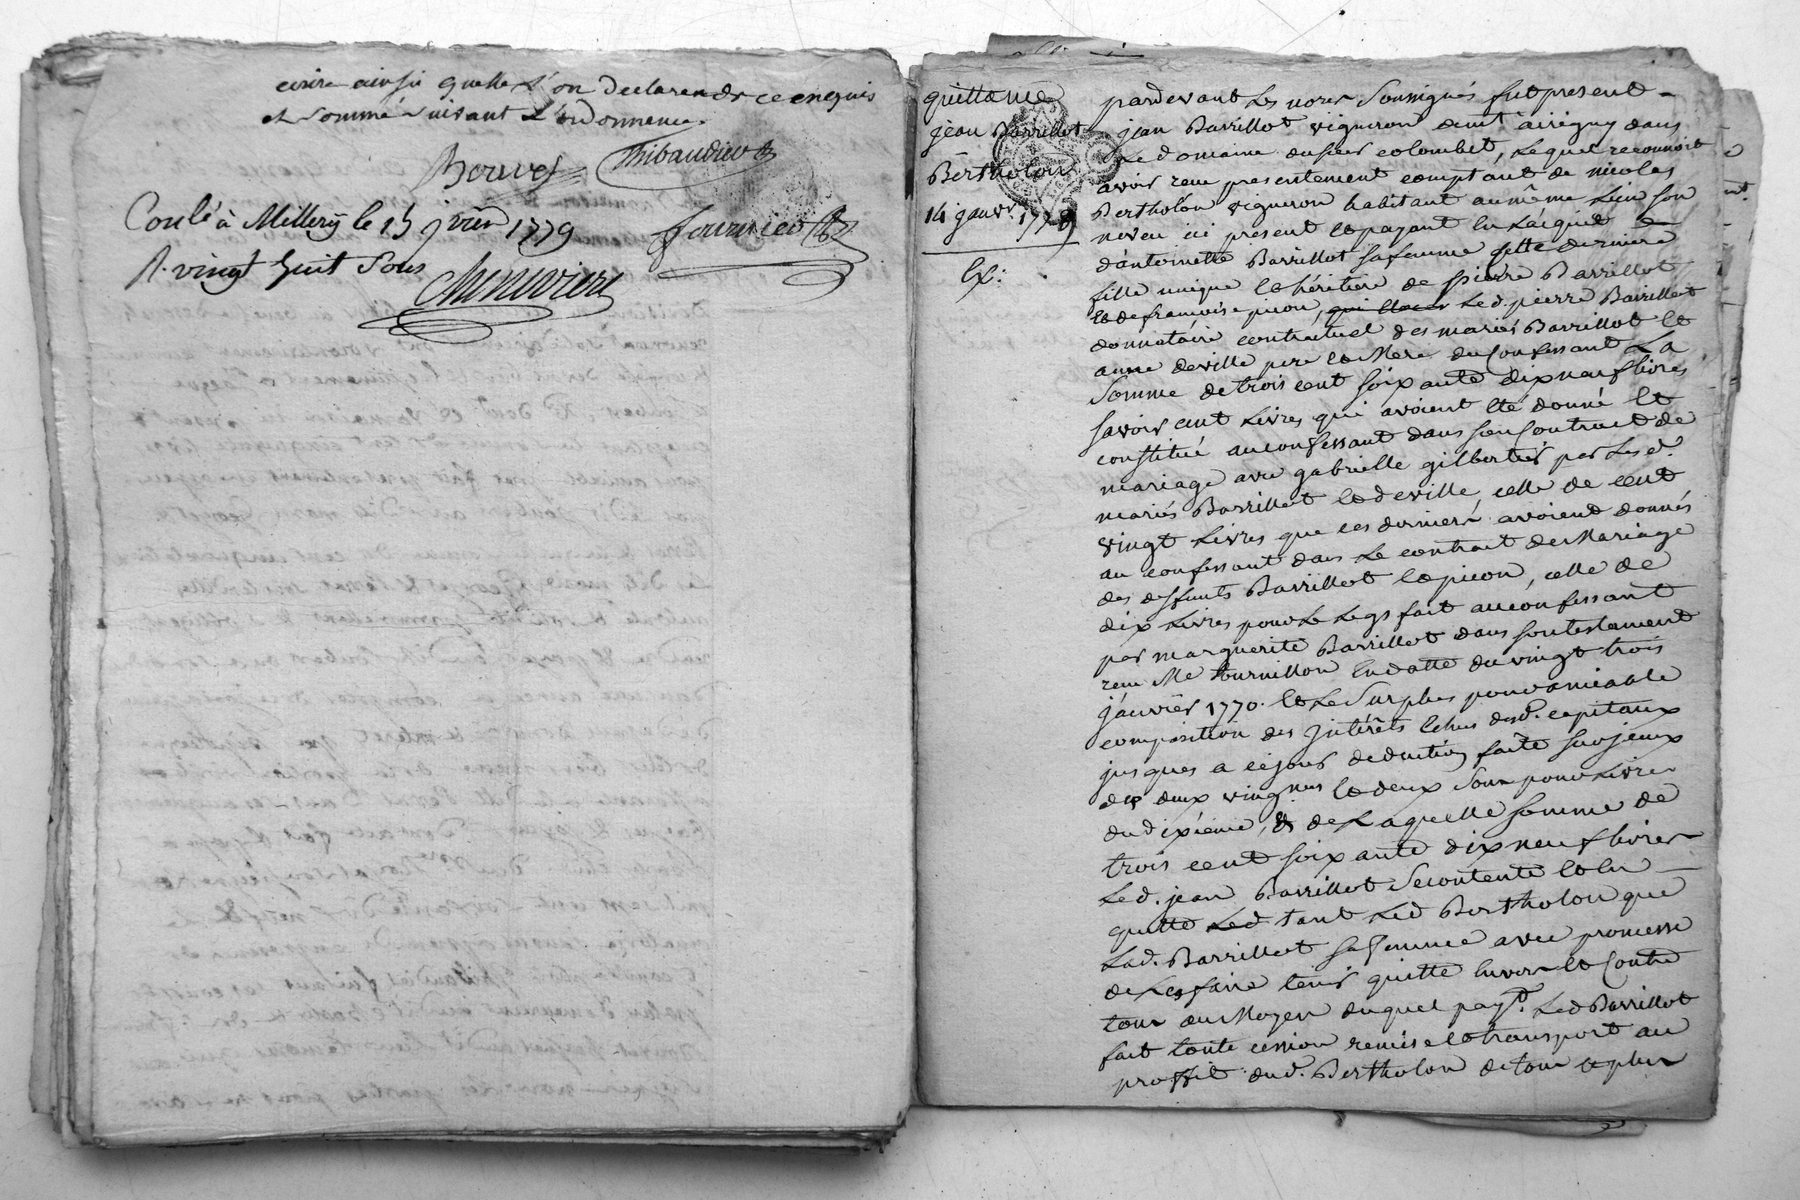 ecrire ainsi quelle l'on declarer de ce enquis
et sommé suivant l'ordonnence.
Bouvet Thibaudier
Conlé à Millery le 15 jvier 1779
R. vingt huit sous
fournier
Chenevière
quittance
jean Barrillot
Bertholon
14 janvr. 1779
Ex:
pardevant les nores soussignés fut present
jean Barrillot vigneron demt à irigny dans
le domaine du sieur colombet, lequel reconnoit
avoir reçu presentement comptant de nicolas
Bertholon vigneron habitant au même lieu son
neveu ici present et payant en l'acquit
d'antoinette Barrillot sa femme cette derniere
fille unique et héritiere de pierre Barrillot
et de françoise picon, led. pierre Barrillot
donnataire contractuel des mariés Barrillot et
anne deville pere et Mere du confessant La
somme de trois cent soixante dix neuf livres
savoir cent livres qui avoient été donné et
constitué au confessant dans son contract de
mariage avec gabrielle gilbertier par les d.
mariés Barrillot et deville, celle de cent
vingt livres que ces derniers avoient donnés
au confessant dans le contrat de Mariage
des deffunts Barrillot et picon, celle de
dix livres pour le legs fait au confessant
par marguerite Barrillot dans son testament
reçu Me tournillon en datte du vingt trois
janvier 1770. et le surplus pour amiable
composition des intérêts échus desd. capitaux
jusques a ce jour deduction faite sur iceux
des deux vingmes et deux sous pour livre
du dixième, de laquelle somme de
trois cent soixante dix neuf livres
led. jean Barrillot se contente et en
quitte tant led Bertholon que
lad. Barrillot sa femme avec promesse
de les faire tenir quitte envers et contre
tous au Moyen duquel payt. led Barrillot
fait toute cession remise et transport au
proffit dud. Bertholon de tous et plus